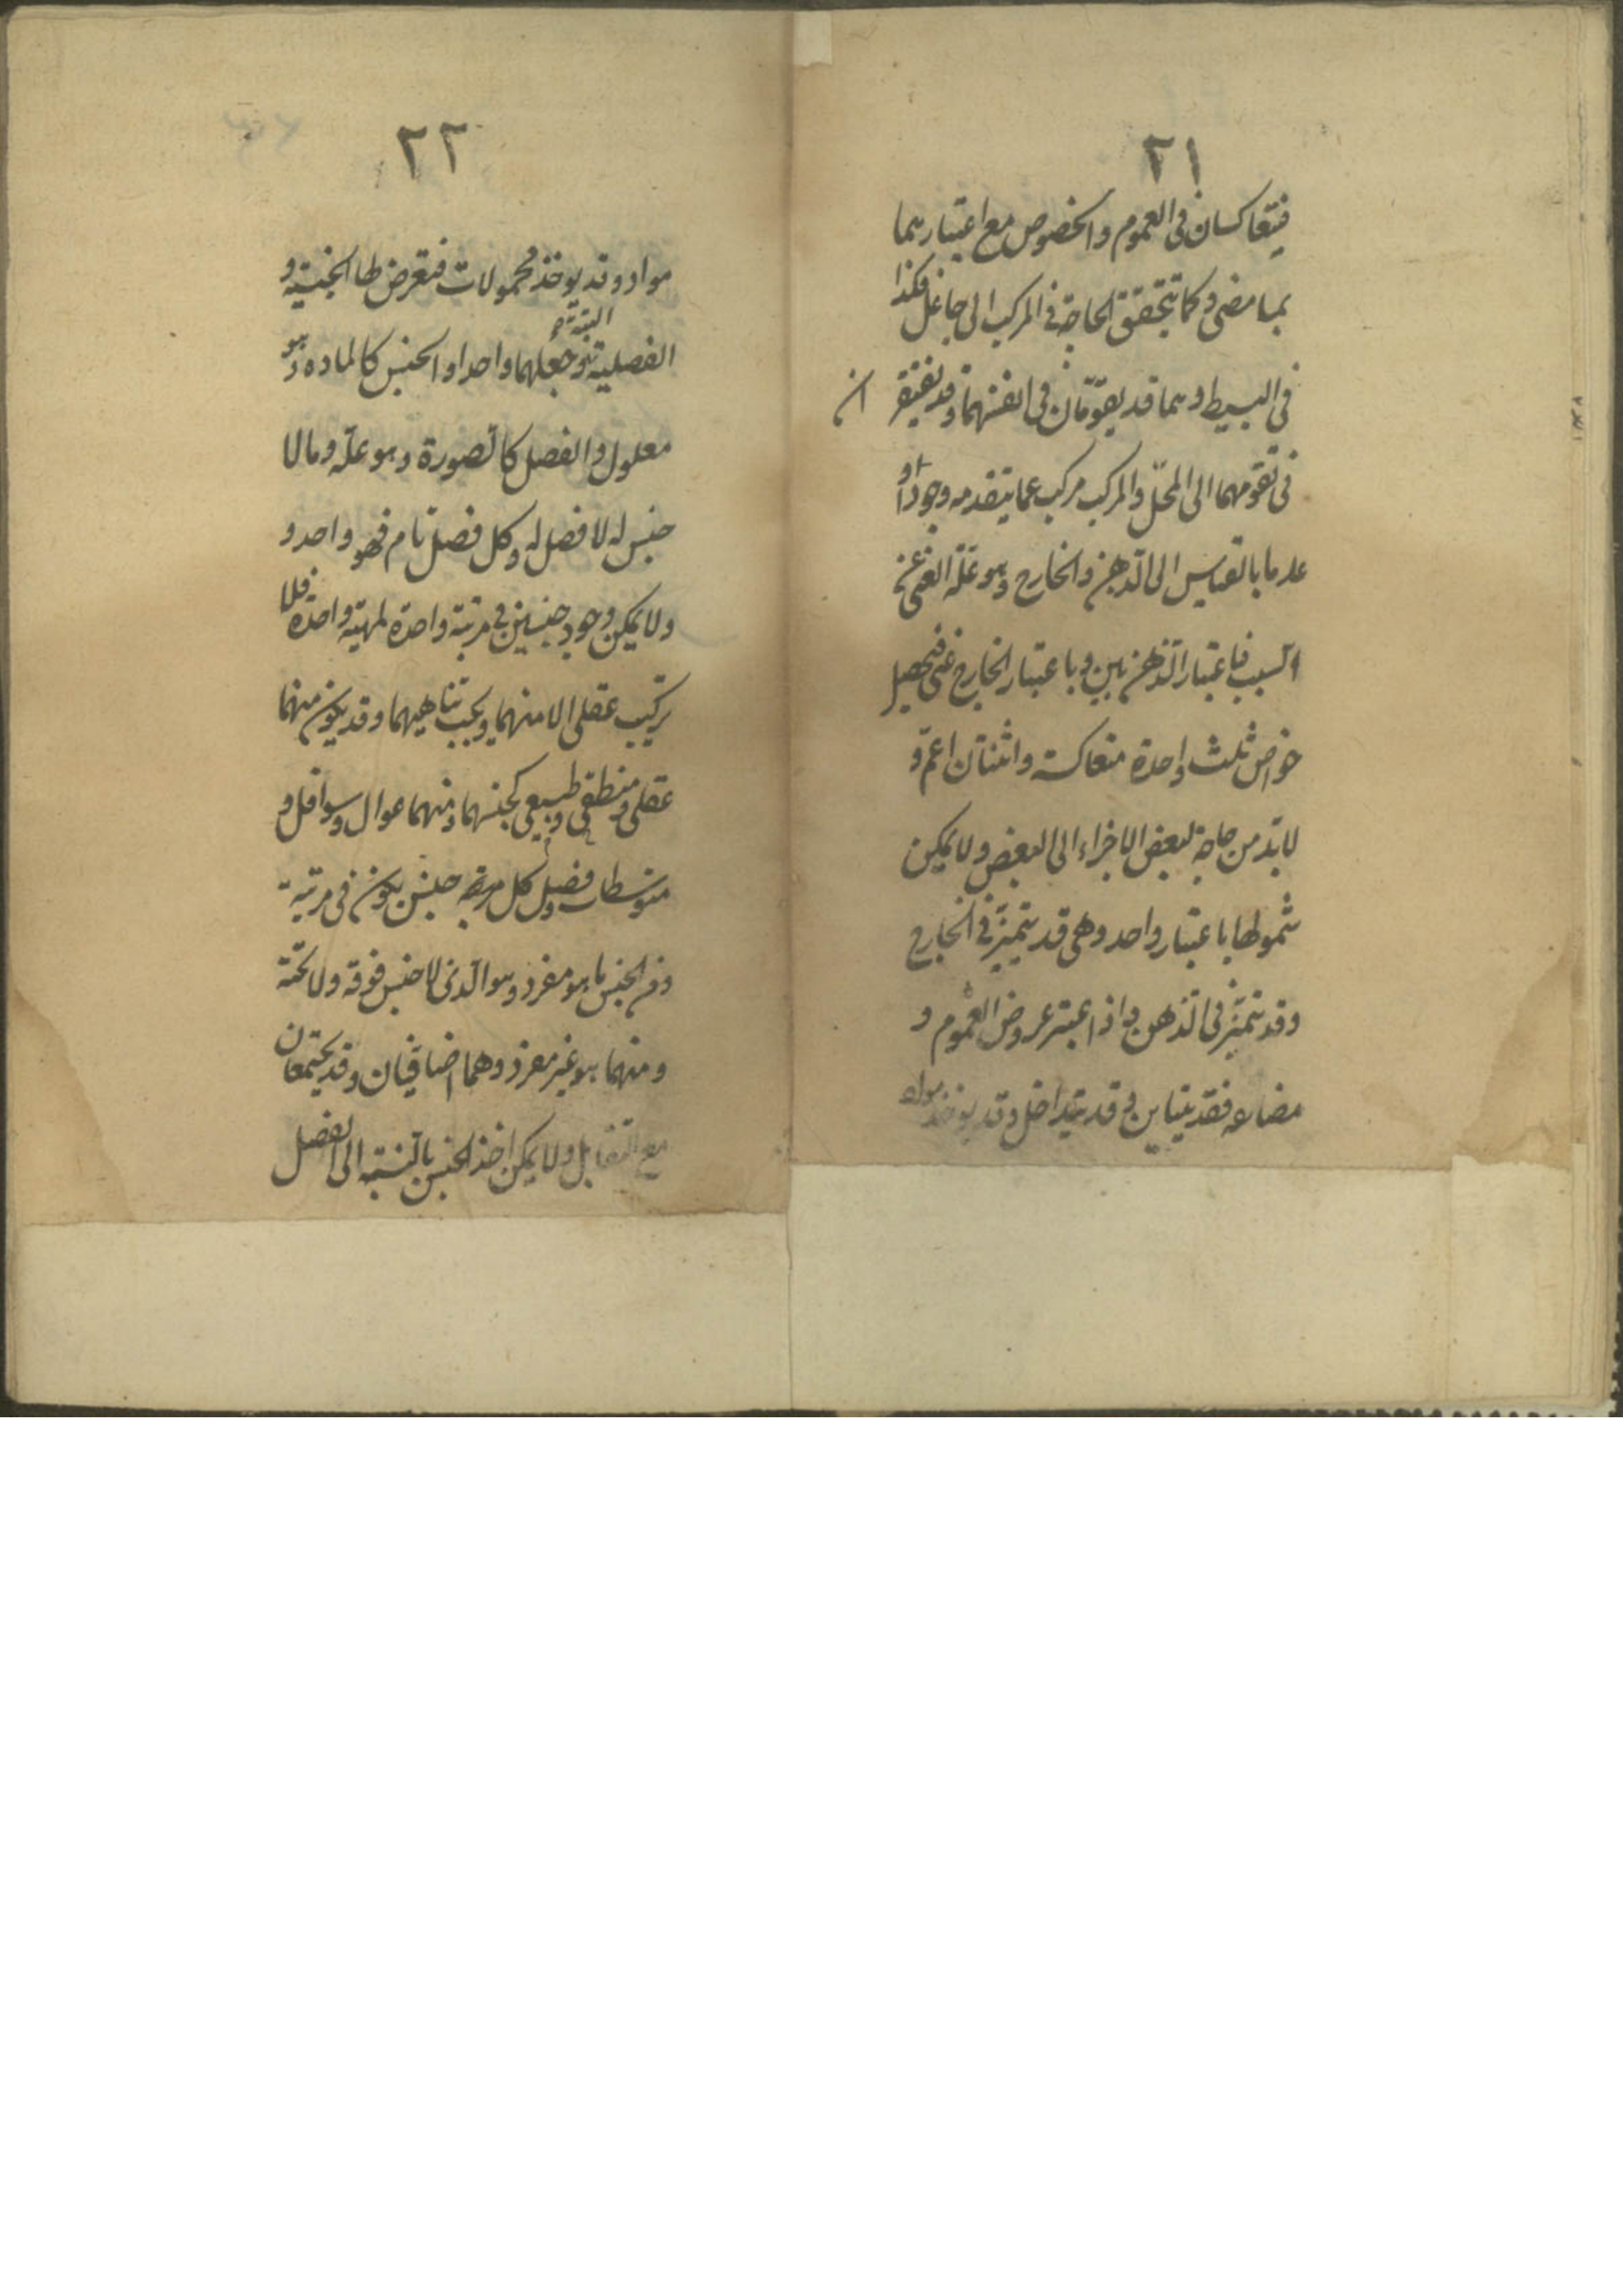 ٢١
فيتعاكسان فى العموم والخصوص مع اعتبارهما
بما مضى وكما تتحقق الحاجة فى المركب الى جاعل فكذا
فى البسيط وهما قد يقومان فى انفسهما وقد يفتقر ان
فى تقومهما الى المحلّ والمركب مركب عما يتقدمه وجودا و
عدما بالقياس الى الذهن والخارج وهو علة الغنى عن
السبب فباعتبار الذهن بين وباعتبار الخارج غنى فتحصل
خواص ثلث واحدة متعاكسة واثنتان اعمّ و
لا بدّ من حاجة لبعض الاجزاء الى البعض ولا يمكن
شمولها باعتبار واحد وهى قد تتميّز فى الخارج
وقد تتميّز فى الذهن واذا اعتبر عروض العموم و
مضاعه فقد يتباين وقد يتداخل وقد يوخذ مواد
٢٢
مواد وقد يوخذ محمولات فتعرض لها الجنسية و
الفصلية وجعلهما واحد او الجنس كالماده وهو
معلول والفصل كالصورة وهو علّة وما لا
جنس له لا فصل له وكل فصل تام فهو واحد و
ولا يمكن وجود جنسين فى مرتبة واحدة لمهية واحدة فلا
تركيب عقلى الا منهما ويجب تناهيهما وقد يكون منهما
عقلى ومنطقى وطبيعى كجنسهما ومنهما عوال وسوافل و
متوسطات وفصل كل جنس يكون فى مرتبة
ومن الجنس ما هو مفرد وهو الذى لا جنس فوقه ولا تحته
ومنهما هو غير مفرد وهما اضافيان وقد يجتمعان
مع التقابل ولا يمكن اخذ الجنس بالنسبة الى الفصل